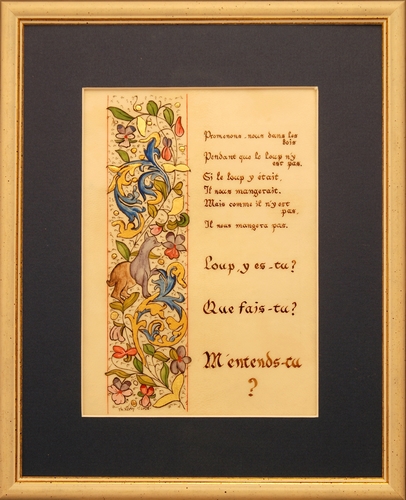 Promenons-nous dans les
bois
Pendant que le loup n'y
est pas.
Si le loup y était,
Il nous mangerait.
Mais comme il n'y est
pas,
Il nous mangera pas.
Loup, y es-tu?
Que fais-tu?
M'entends-tu
?